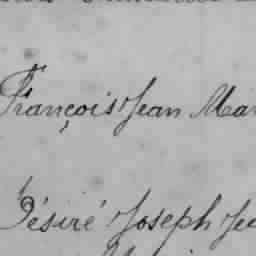 François Jean Mar
Désiré Joseph Je